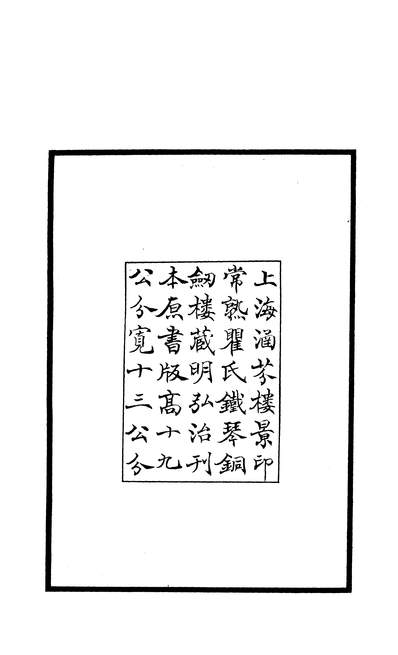 上海涵芬樓景印
常熟瞿氏鐵琴銅
劒樓藏明弘治刊
本原書版高十九
公分寬十三公分